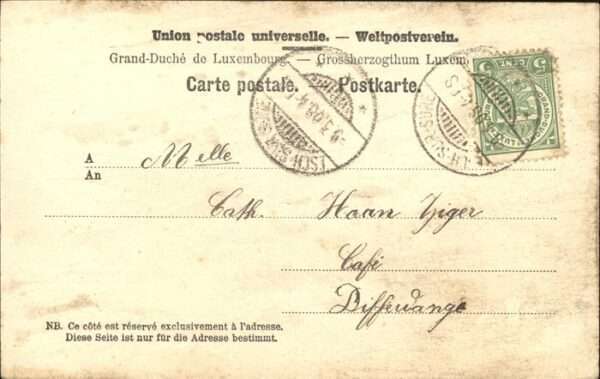 Union postale universelle. — Weltpostverein.
Grand-Duché de Luxembourg. — Grossherzogthum Luxem
Carte postale. Postkarte.
5 CENT. 5
A Melle
An
Cath. Haan
Café
Differdange
NB. Ce côté est réservé exclusivement à l'adresse.
Diese Seite ist nur für die Adresse bestimmt.